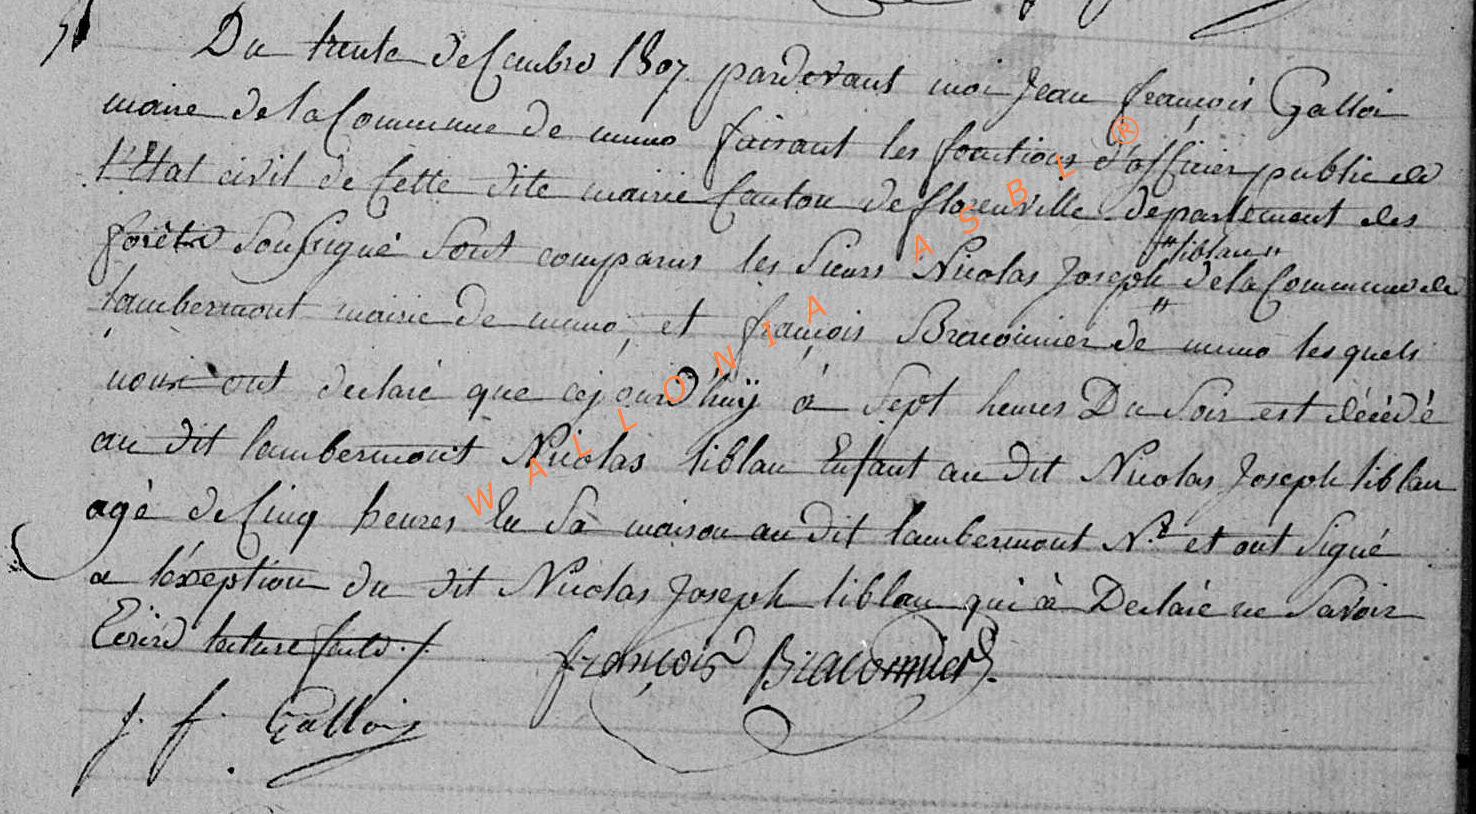 Du trente deCembre 1807 pardevant moi Jean françois Galloi
maire de la Commune de muno faisant les fonctions d'officier public de
l'Etat civil de Cette dite mairie Canton de florenville departement des
"liblan"
forêtes Soussigné Sont comparus les Sieurs Nicolas Joseph de la Commune de
lambermont mairie de muno, et françois Braconnier de muno lesquels
nous ont declaré que cejourd'huÿ à Sept heures Du Soir est décédé
au dit lambermont Nicolas liblan Enfant au dit Nicolas Joseph liblan
agé de Cinq heures En Sa maison au dit lambermont N.e et ont Signé
a léxeption du dit Nicolas Joseph liblan qui à Declaré ne Savoir
Ecrire lecture faite ./.
françois Braconnier
J. f. Gallois
WALLONIA ASBL ®